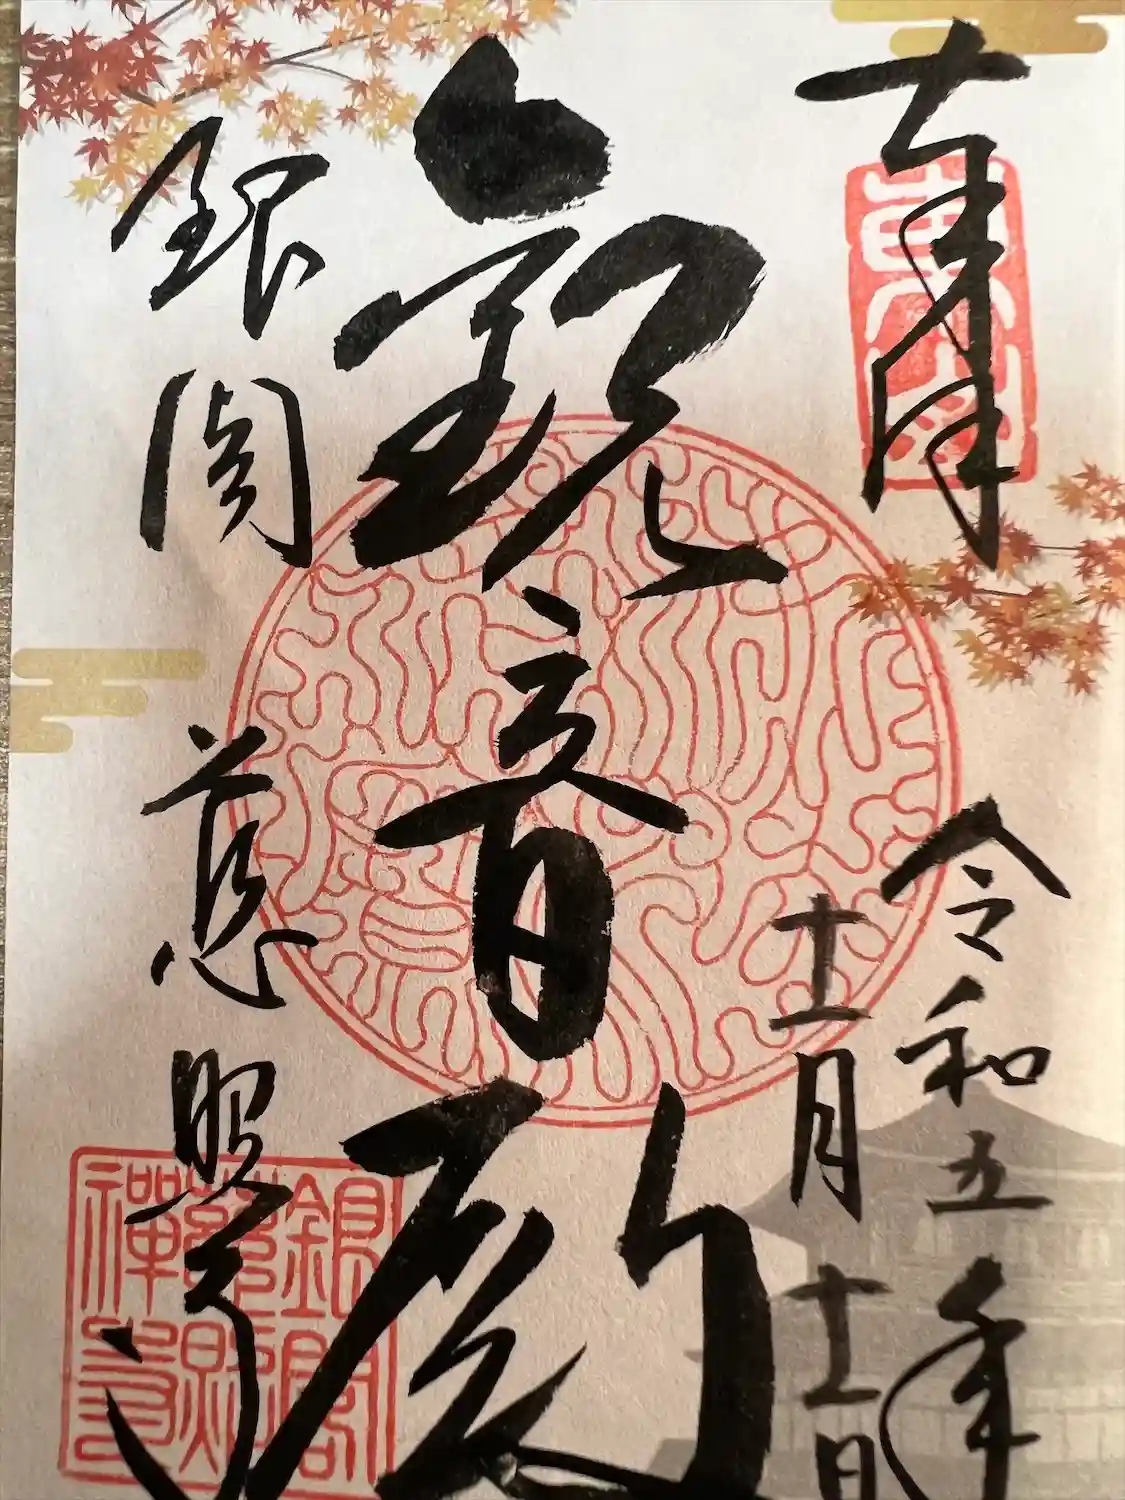 奉拝
東山
令和五年
十一月十一日
観音殿
銀閣慈照寺
銀閣
慈照
禪寺